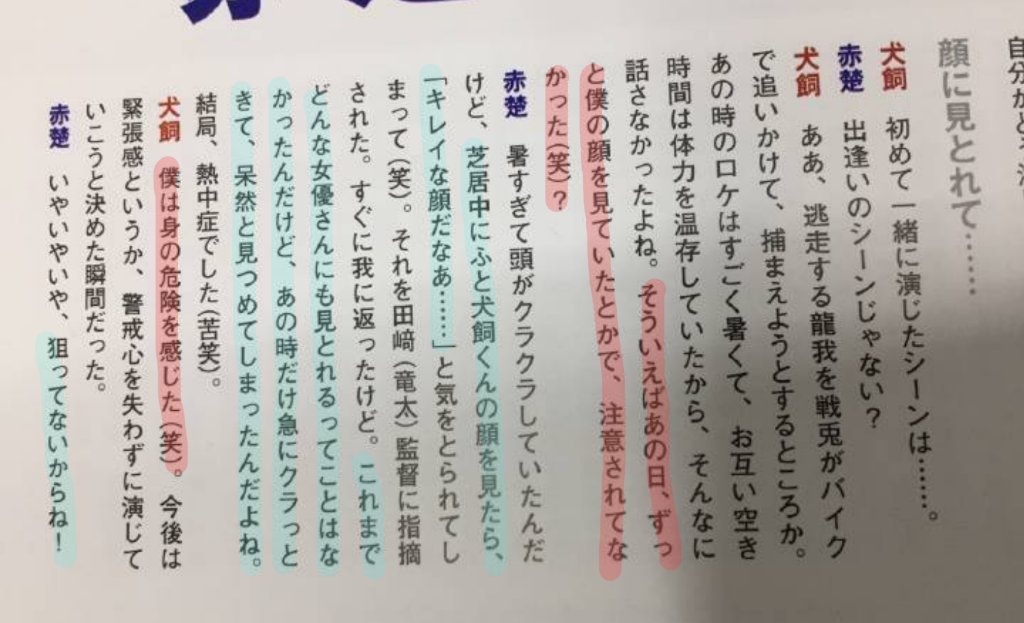 顔に見とれて……
犬飼　初めて一緒に演じたシーンは……。
赤楚　出逢いのシーンじゃない？
犬飼　ああ、逃走する龍我を戦兎がバイク
で追いかけて、捕まえようとするところか。
あの時のロケはすごく暑くて、お互い空き
時間は体力を温存していたから、そんなに
話さなかったよね。そういえばあの日、ずっ
と僕の顔を見ていたとかで、注意されてな
かった（笑）？
赤楚　暑すぎて頭がクラクラしていたんだ
けど、芝居中にふと犬飼くんの顔を見たら、
「キレイな顔だなあ……」と気をとられてし
まって（笑）。それを田﨑（竜太）監督に指摘
された。すぐに我に返ったけど。これまで
どんな女優さんにも見とれるってことはな
かったんだけど、あの時だけ急にクラっと
きて、呆然と見つめてしまったんだよね。
結局、熱中症でした（苦笑）。
犬飼　僕は身の危険を感じた（笑）。今後は
緊張感というか、警戒心を失わずに演じて
いこうと決めた瞬間だった。
赤楚　いやいやいや、狙ってないからね！